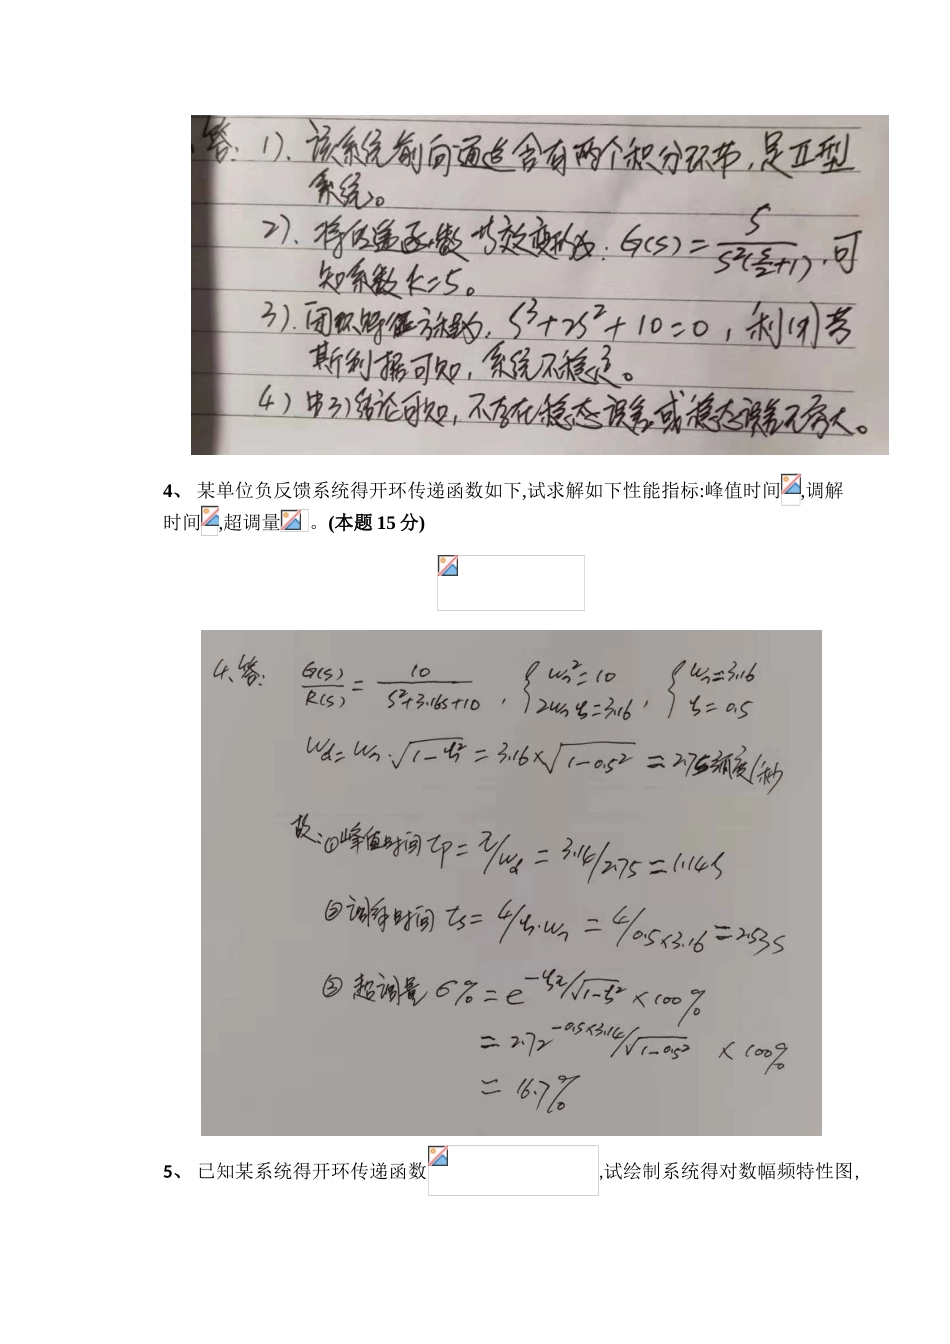 答: 1). 该系统前向通道含有两个积分环节,是II型
系统。
2). 将传递函数等效变形为: G(s) = 5/(s²(s/2+1)), 可
知系数K=5。
3). 闭环特征方程为, S³+2S²+10=0, 利用劳
斯判据可知, 系统不稳定。
4) 由3)结论可知, 不存在稳态误差或稳态误差无穷大。
4、 某单位负反馈系统得开环传递函数如下,试求解如下性能指标:峰值时间,调解
时间,超调量。(本题 15 分)
4、答: G(s)/R(s) = 10/(S²+3.16s+10), { ωn²=10 2ωnξ=3.16, { ωn=3.16 ξ=0.5
ωd=ωn·√(1-ξ²) = 3.16×√(1-0.5²) = 2.75弧度/秒
故: ①峰值时间tp=π/ωd = 3.14/2.75 = 1.14s
②调解时间 ts= 4/ξ·ωn = 4/0.5×3.16 = 2.53s
③ 超调量 σ% = e^(-ξπ/√(1-ξ²)) ×100%
= 2.72^(-0.5×3.14/√(1-0.5²)) ×100%
= 16.7%
5、 已知某系统得开环传递函数,试绘制系统得对数幅频特性图,